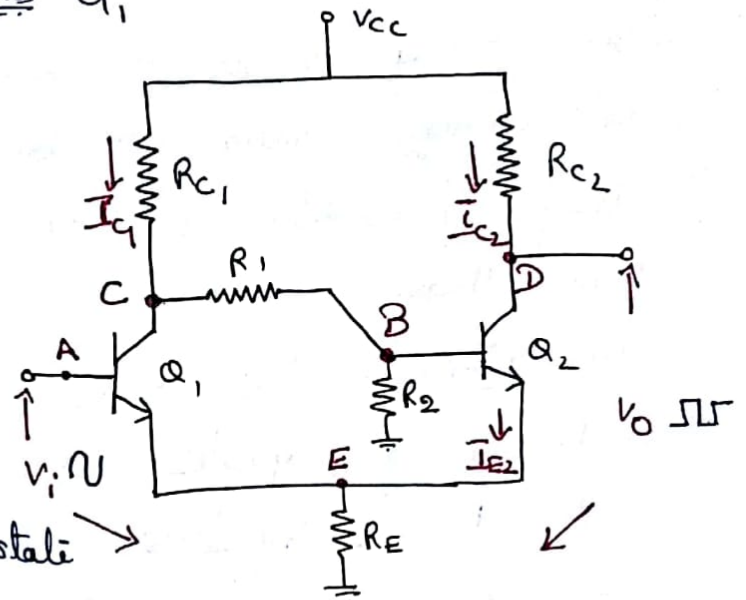 Q1
VCC
RC1
RC2
IC1
iC2
R1
C
D
B
A
Q1
Q2
R2
Vi
E
IE2
Vo
RE
state